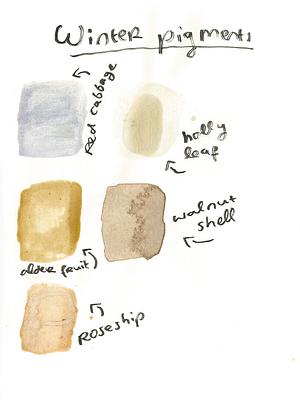 Winter pigments
Red cabbage
holly
leaf
walnut
shell
alder fruit
Roseship